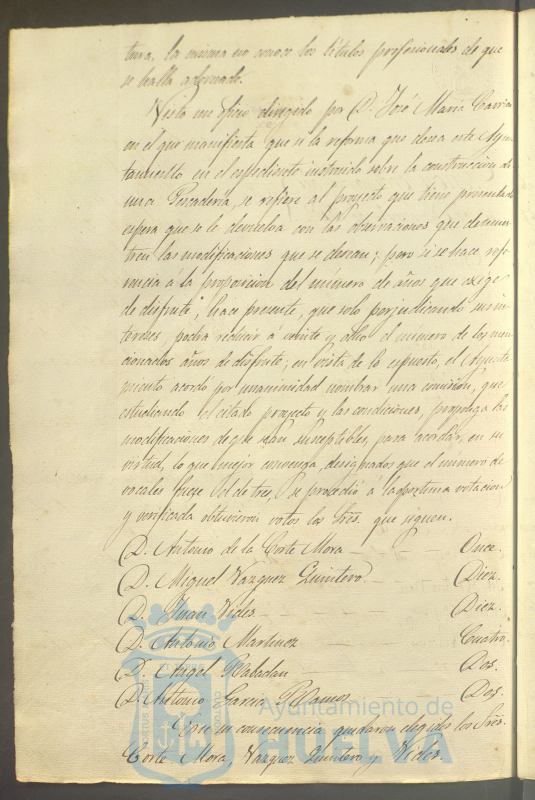 tura, la misma no conoce los títulos profesionales de que
se halla adornado.
Visto un oficio dirigido por D. José María Carrion
en el que manifiesta que si la reforma que desea este Ayun
tamiento en el expediente instruido sobre la construccion de
una Pescadería, se refiere al proyecto que tiene presentado
espera que se le devuelva con las observaciones que demues
tren las modificaciones que se desean; pero si se hace refe
rencia á la proposicion del número de años que exige
de disfrute, hace presente, que solo perjudicando sus in
tereses, podra reducir á veinte y ocho el número de los men
cionados años de disfrute; en vista de lo espuesto, el Ayunta
miento acordó por unanimidad nombrar una comision, que
estudiando el citado proyecto y las condiciones, proponga las
modificaciones de que sean susceptibles, para acordar, en su
virtud, lo que mejor convenga, designados que el número de
vocales fuese el de tres, se procedió á la oportuna votacion
y verificada obtuvieron votos los Sres. que siguen.
D. Antonio de la Corte Mora - - - Once.
D. Miguel Vazquez Quintero - - - Diez.
D. Juan Vides - - - Diez.
D. Antonio Martinez - - - Cuatro.
D. Angel Rabadan - - - Dos.
D. Antonio Garcia Ramos - - - Dos.
Y que en consecuencia quedaron elegidos los Sres.
Corte Mora, Vazquez Quintero y Vides.
Ayuntamiento de
HUELVA